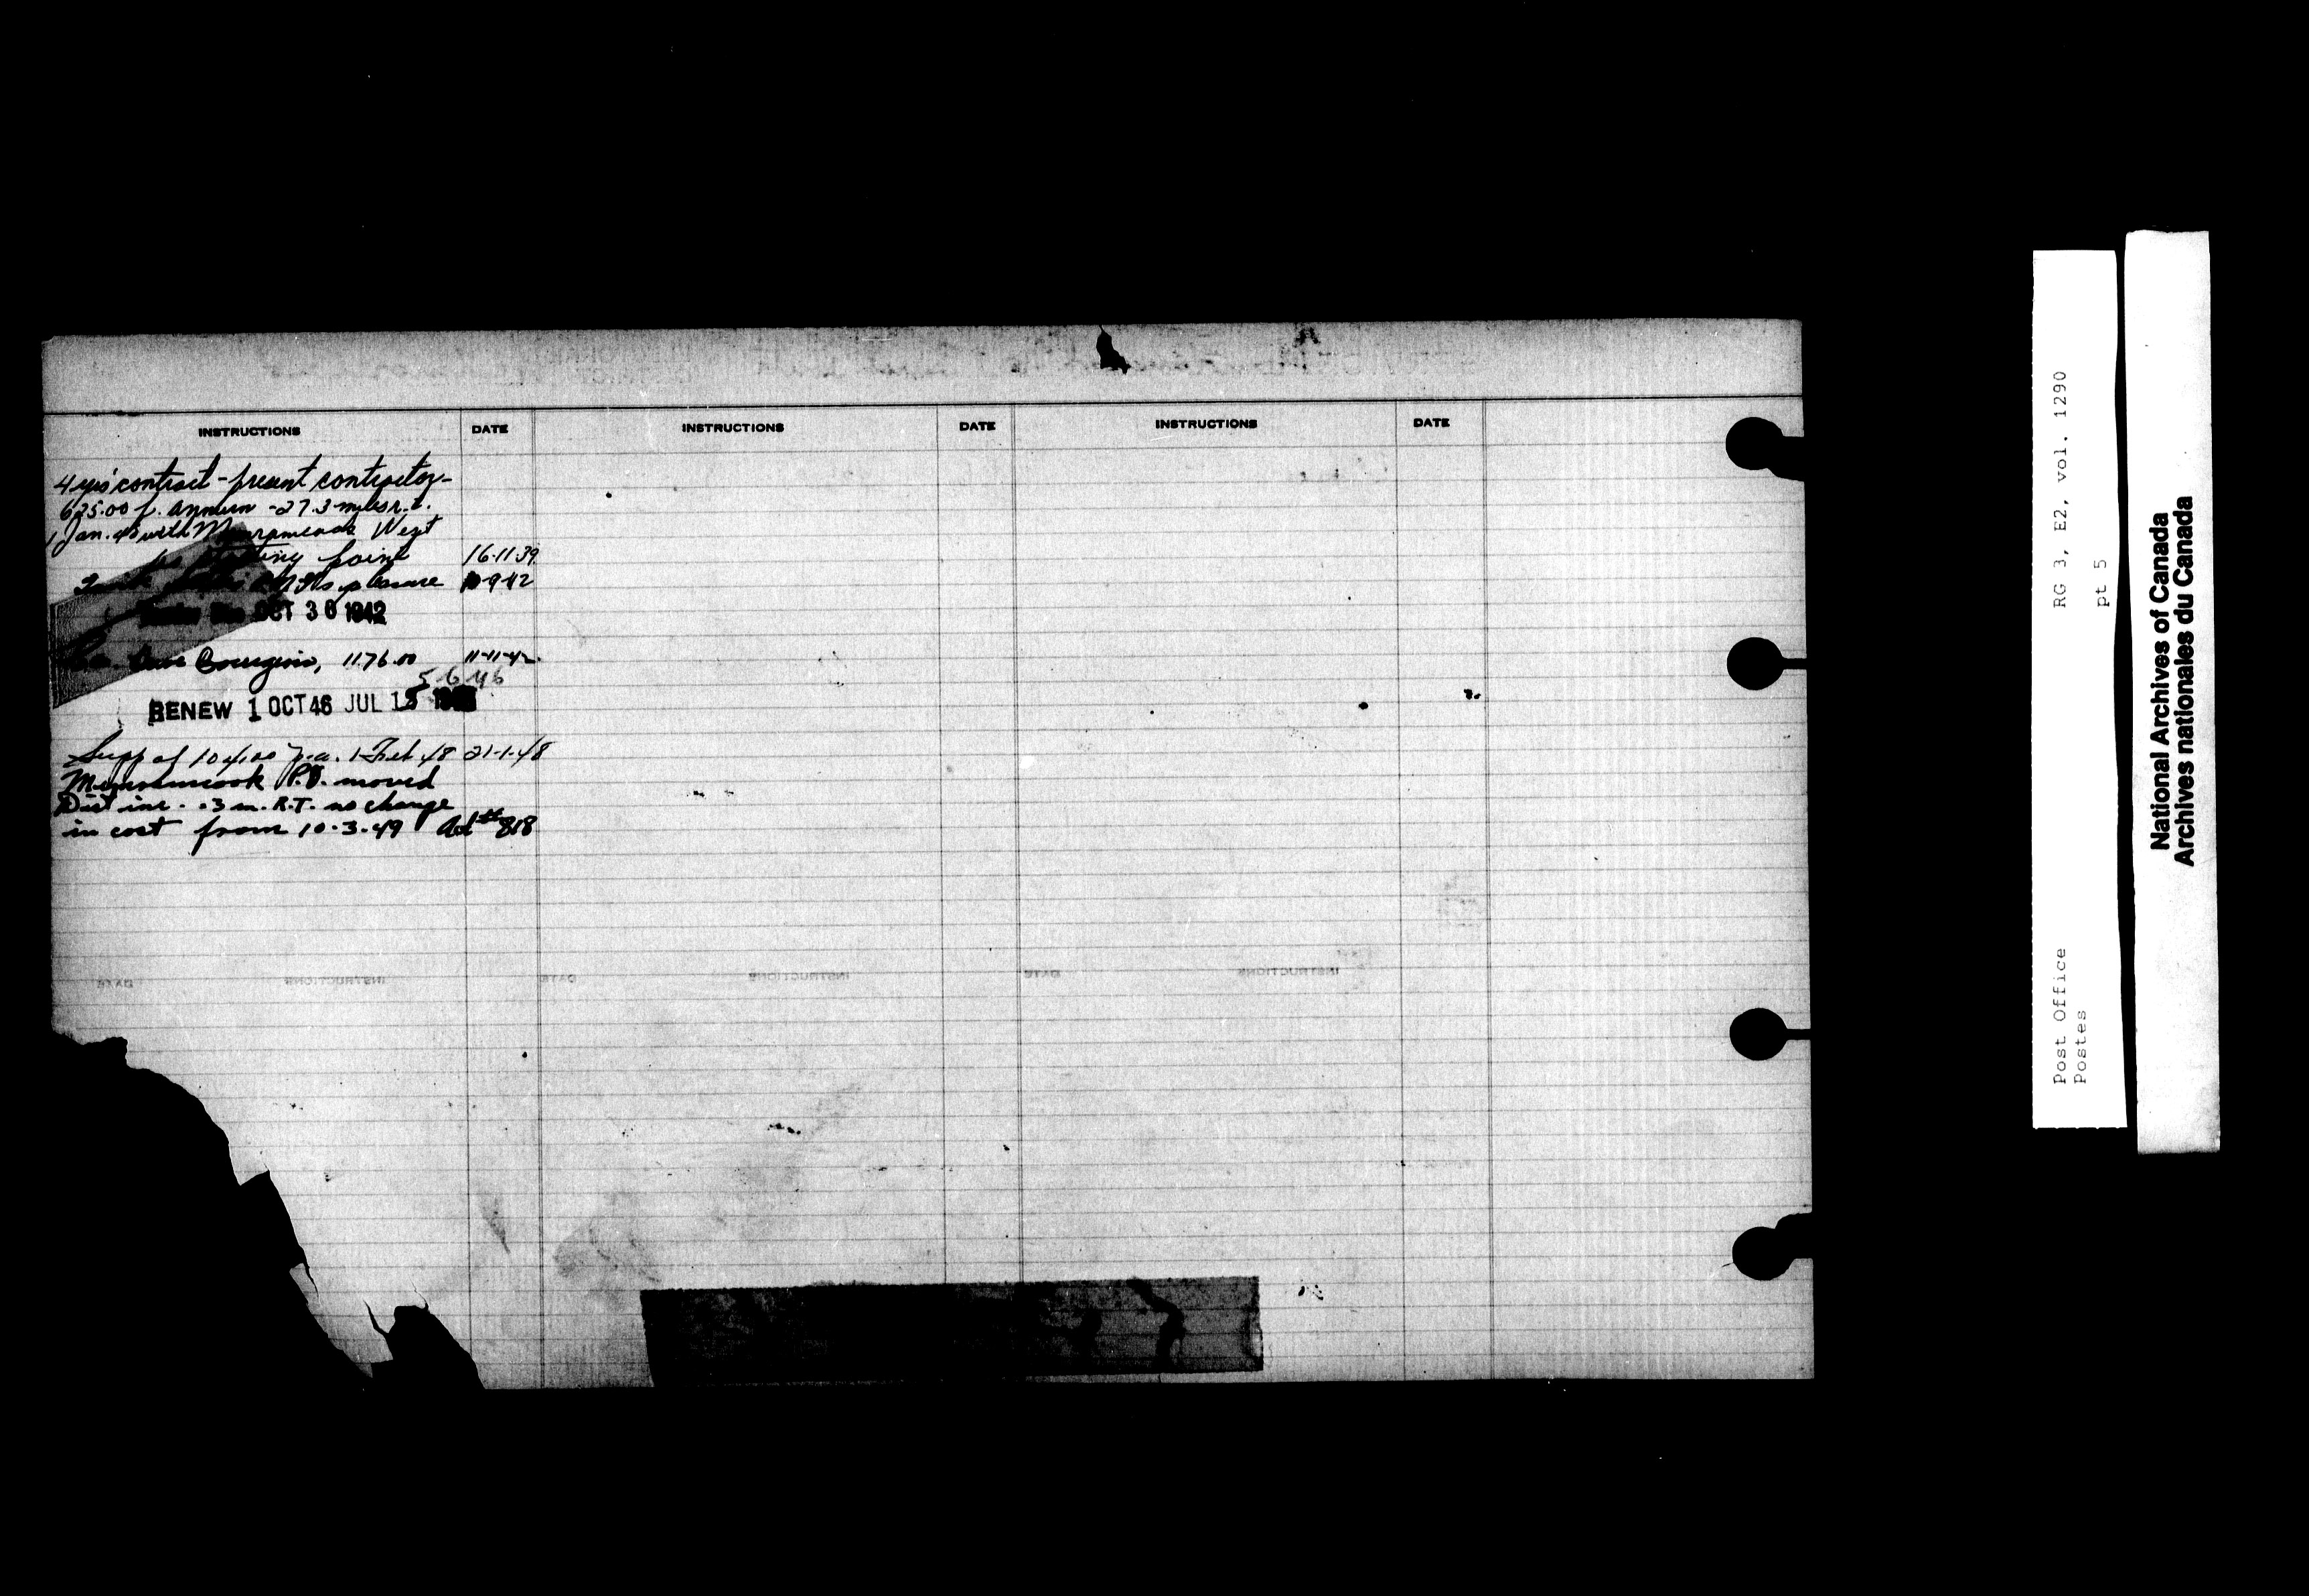 INSTRUCTIONS DATE INSTRUCTIONS DATE INSTRUCTIONS DATE
4 yrs' contract - present contractor -
625.00 p. annum - 27.3 miles r.t.
1 Jan. 40 with Memramcook West
as starting point 16-11-39
P.M.G's pleasure 10-9-42
OCT 30 1942
Bourgeois, 1176.00 11-11-42
5-6-46
RENEW 1 OCT 46 JUL 15
Supp of 104.00 p.a. 1 Feb 48 21-1-48
Memramcook P.O. moved
Dist inc. .3 m. R.T. no change
in cost from 10-3-49 Ad # 818
INSTRUCTIONS DATE INSTRUCTIONS DATE INSTRUCTIONS DATE
Post Office RG 3, E2, vol. 1290
Postes pt 5
National Archives of Canada
Archives nationales du Canada